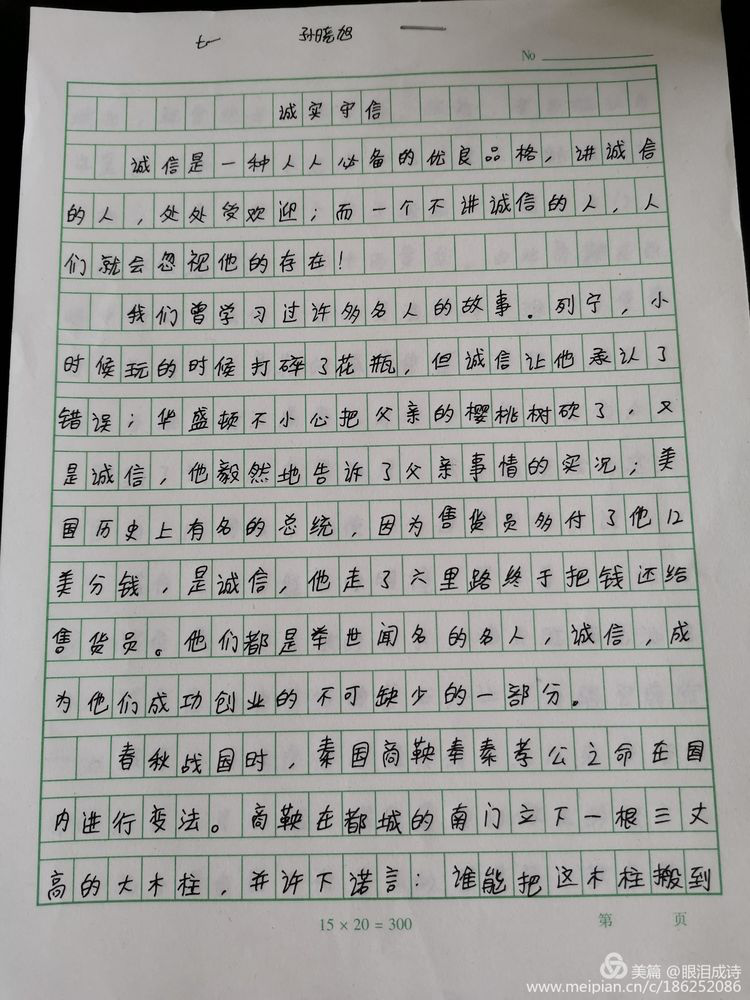 七 孙晓旭
No
诚实守信
诚信是一种人人必备的优良品格，讲诚信
的人，处处受欢迎；而一个不讲诚信的人，人
们就会忽视他的存在！
我们曾学习过许多名人的故事。列宁，小
时候玩的时候打碎了花瓶，但诚信让他承认了
错误；华盛顿不小心把父亲的樱桃树砍了，又
是诚信，他毅然地告诉了父亲事情的实况；美
国历史上有名的总统，因为售货员多付了他12
美分钱，是诚信，他走了六里路终于把钱还给
售货员。他们都是举世闻名的名人，诚信，成
为他们成功创业的不可缺少的一部分。
春秋战国时，秦国商鞅奉秦孝公之命在国
内进行变法。商鞅在都城的南门立下一根三丈
高的大木柱，并许下诺言：谁能把这木柱搬到
15 × 20 = 300 第 页
美篇 @眼泪成诗
www.meipian.cn/c/186252086